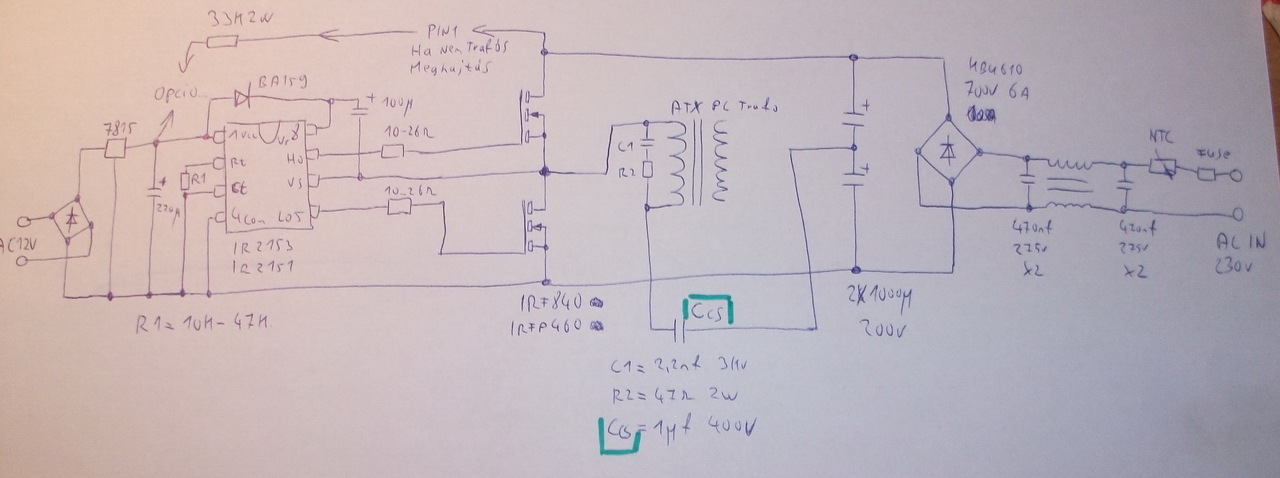 33K 2W
PIN1
Ha nem Trafós
Meghajtás
OPCIO
BA159
7815
+ 100µ
1Vcc
VB 8
10-26Ω
Ho
Rt
R1
Ct
VS
+
220µ
4Com
LO5
10-26Ω
AC12V
IR2153
IR2151
R1= 10K-47K
IRF840
IRFP460
ATX PC Trafo
C1
R2
Ccs
C1= 2,2nf 3Kv
R2= 47Ω 2W
Ccs= 1µf 400V
+
+
2X1000µ
200v
KBU610
700V 6A
NTC
Fuse
470nf
275v
X2
420nf
275v
X2
AC IN
230v